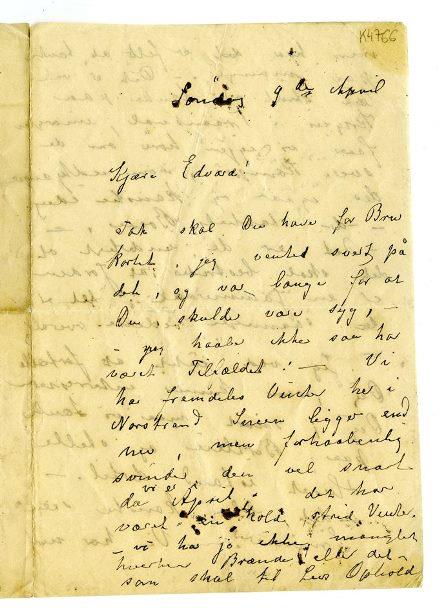 K4766
Søndag 9de April
Kjære Edvard!
Tak skal Du have for Brev
kortet, jeg ventede svært på
det, og var bange for at
Du skulde være syg, –
– jeg haaber ikke saa har
været Tilfældet! – Vi
ha fremdeles Vinter her i
Norstrand Sneen ligger end
nu, men forhaabenlig
svinder den vel snart
da vi er i April. det har
været en kold strid Vinter.
– vi ha jo ikke manglet
hverken Brænde eller det
som skal til Livs Ophold